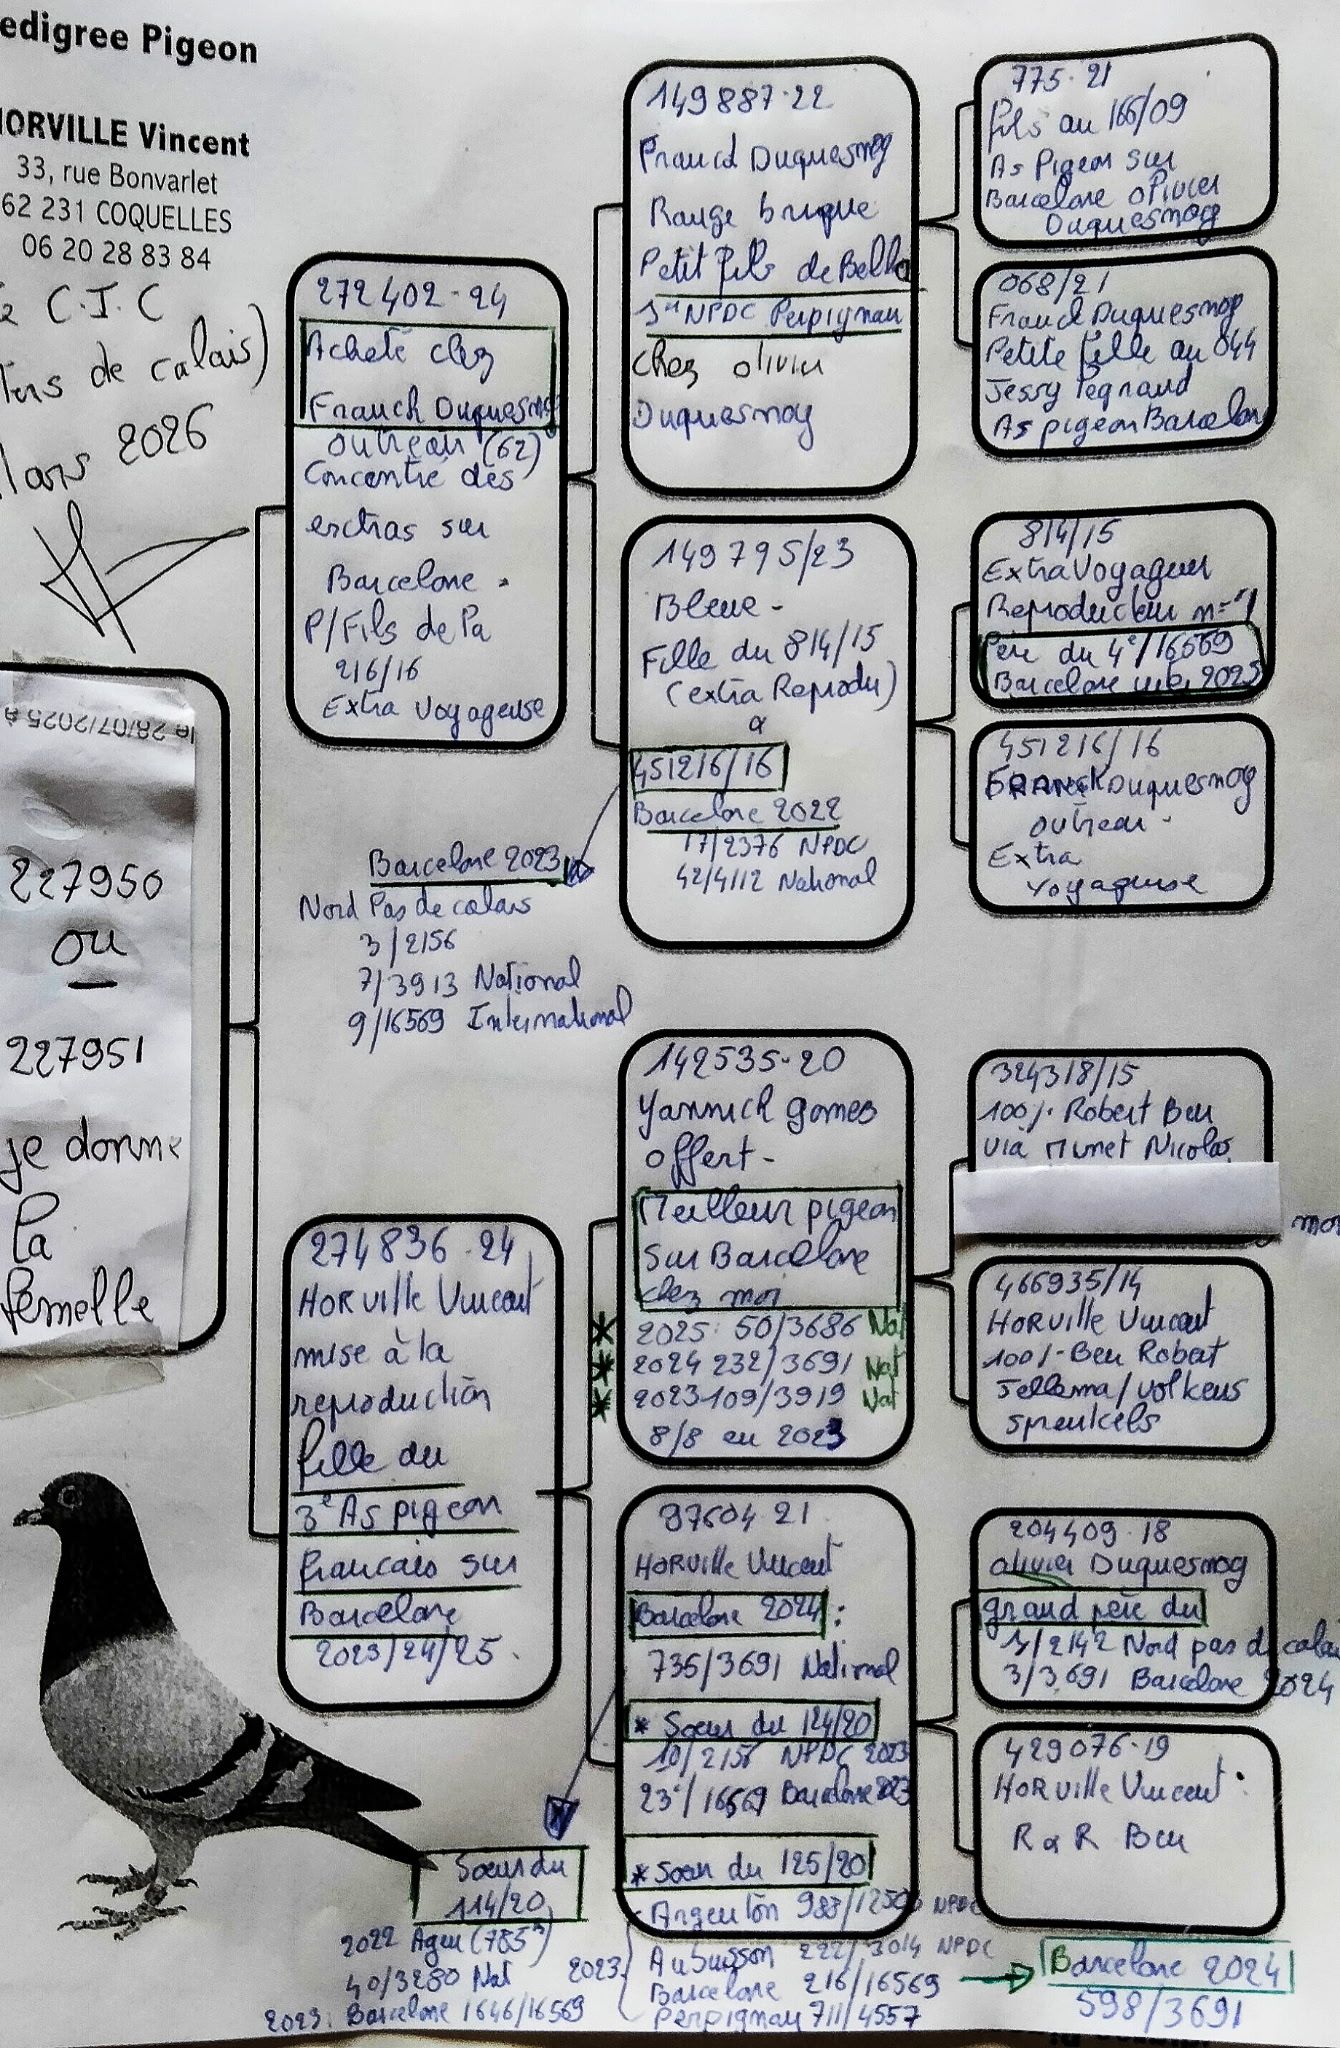 edigree Pigeon
HORVILLE Vincent
33, rue Bonvarlet
62 231 COQUELLES
06 20 28 83 84
C.I.C
de calais)
Mars 2026
le 28/07/2025 à
227950
ou
227951
je donne
la
femelle
272402-24
Acheté chez
Franck Duquesnoy
outreau (62)
Concentré des
extras sur
Barcelone.
P/Fils de la
216/16
Extra Voyageuse
Barcelone 2023
Nord Pas de calais
3/2156
7/3913 National
9/16569 International
274836-24
HORville Vincent
mise à la
reproduction
fille du
3e As pigeon
francais sur
Barcelone
2023/24/25.
149887-22
Franck Duquesnoy
Rouge brique
Petit fils de Bella
1er NPDC Perpignan
chez olivier
Duquesnoy
149795/23
Bleue-
Fille du 814/15
(extra Reprodu)
a
451216/16
Barcelone 2022
17/2376 NPDC
42/4112 National
142535-20
Yannick gomes
offert-
Meilleur pigeon
Sur Barcelone
chez moi
* 2025: 50/3686 Nat
* 2024 232/3691 Nat
* 2023 109/3919 Nat
8/8 en 2023
97604 21
HORville Vincent
Barcelone 2024:
735/3691 National
* Soeur du 124/20
10/2156 NPDC 2023
23e/16569 Barcelone 2023
* Soeur du 125/20
Argenton 983/12506 NPDC
2023 Aubusson 222/3014 NPDC
Barcelone 216/16569
Perpignan 711/4557
Barcelone 2024
598/3691
Soeur du
114/20
2022 Agen (785)
40/3280 Nat
2023: Barcelone 1646/16569
775-21
fils au 166/09
As Pigeon sur
Barcelone Olivier
Duquesnoy
068/21
Franck Duquesnoy
Petite fille au 044
Jessy Pegnaud
As pigeon Barcelone
814/15
Extra Voyageur
Reproducteur n=°1
Père du 4e/16569
Barcelone 2023
451216/16
FRANCK Duquesnoy
outreau-
Extra
Voyageuse
324318/15
100% Robert Ben
via Munet Nicolas
466935/14
HORville Vincent
100%-Ben Robert
Jellema/Volkens
sprenkels
204409-18
olivier Duquesnoy
grand père du
1/2142 Nord pas de calais
3/3691 Barcelone 2024
429076-19
HORville Vincent:
R & R Ben